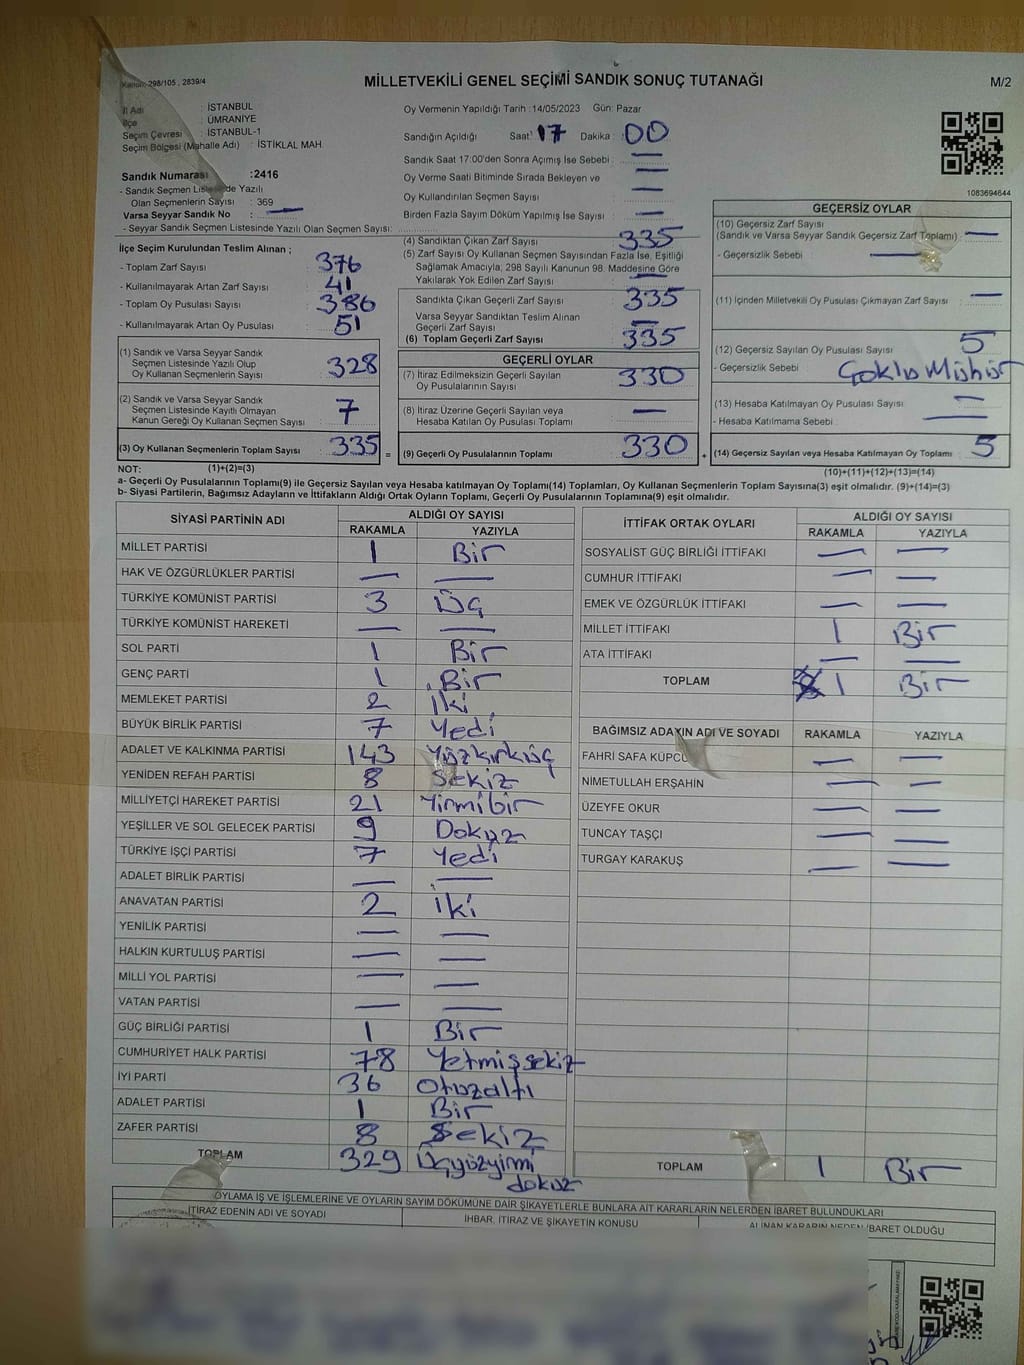 Kanun: 298/105 , 2839/4
MİLLETVEKİLİ GENEL SEÇİMİ SANDIK SONUÇ TUTANAĞI
M/2
İl Adı : İSTANBUL
İlçe : ÜMRANİYE
Seçim Çevresi : İSTANBUL-1
Seçim Bölgesi (Mahalle Adı) : İSTİKLAL MAH.
Oy Vermenin Yapıldığı Tarih : 14/05/2023 Gün: Pazar
Sandığın Açıldığı Saat 17 Dakika : 00
Sandık Saat 17:00'den Sonra Açımış İse Sebebi : —
Oy Verme Saati Bitiminde Sırada Bekleyen ve —
Oy Kullandırılan Seçmen Sayısı —
Birden Fazla Sayım Döküm Yapılmış İse Sayısı : —
1083694644
Sandık Numarası :2416
- Sandık Seçmen Listesinde Yazılı
Olan Seçmenlerin Sayısı : 369
Varsa Seyyar Sandık No : —
- Seyyar Sandık Seçmen Listesinde Yazılı Olan Seçmen Sayısı:
İlçe Seçim Kurulundan Teslim Alınan ;
- Toplam Zarf Sayısı : 376
- Kullanılmayarak Artan Zarf Sayısı : 41
- Toplam Oy Pusulası Sayısı : 386
- Kullanılmayarak Artan Oy Pusulası : 51
(1) Sandık ve Varsa Seyyar Sandık
Seçmen Listesinde Yazılı Olup
Oy Kullanan Seçmenlerin Sayısı : 328
(2) Sandık ve Varsa Seyyar Sandık
Seçmen Listesinde Kayıtlı Olmayan
Kanun Gereği Oy Kullanan Seçmen Sayısı : 7
(3) Oy Kullanan Seçmenlerin Toplam Sayısı : 335 =
(4) Sandıktan Çıkan Zarf Sayısı : 335
(5) Zarf Sayısı Oy Kullanan Seçmen Sayısından Fazla İse, Eşitliği
Sağlamak Amacıyla; 298 Sayılı Kanunun 98. Maddesine Göre
Yakılarak Yok Edilen Zarf Sayısı : —
Sandıkta Çıkan Geçerli Zarf Sayısı : 335
Varsa Seyyar Sandıktan Teslim Alınan
Geçerli Zarf Sayısı : —
(6) Toplam Geçerli Zarf Sayısı : 335
GEÇERLİ OYLAR
(7) İtiraz Edilmeksizin Geçerli Sayılan
Oy Pusulalarının Sayısı : 330
(8) İtiraz Üzerine Geçerli Sayılan veya
Hesaba Katılan Oy Pusulası Toplamı : —
(9) Geçerli Oy Pusulalarının Toplamı : 330 +
GEÇERSİZ OYLAR
(10) Geçersiz Zarf Sayısı
(Sandık ve Varsa Seyyar Sandık Geçersiz Zarf Toplamı) : —
- Geçersizlik Sebebi : —
(11) İçinden Milletvekili Oy Pusulası Çıkmayan Zarf Sayısı : —
(12) Geçersiz Sayılan Oy Pusulası Sayısı : 5
- Geçersizlik Sebebi : Çoklu Mühür
(13) Hesaba Katılmayan Oy Pusulası Sayısı : —
- Hesaba Katılmama Sebebi : —
(14) Geçersiz Sayılan veya Hesaba Katılmayan Oy Toplamı : 5
NOT: (1)+(2)=(3)
(10)+(11)+(12)+(13)=(14)
a- Geçerli Oy Pusulalarının Toplamı(9) ile Geçersiz Sayılan veya Hesaba katılmayan Oy Toplamı(14) Toplamları, Oy Kullanan Seçmenlerin Toplam Sayısına(3) eşit olmalıdır. (9)+(14)=(3)
b- Siyasi Partilerin, Bağımsız Adayların ve İttifakların Aldığı Ortak Oyların Toplamı, Geçerli Oy Pusulalarının Toplamına(9) eşit olmalıdır.
SİYASİ PARTİNİN ADI ALDIĞI OY SAYISI
RAKAMLA YAZIYLA
MİLLET PARTİSİ 1 Bir
HAK VE ÖZGÜRLÜKLER PARTİSİ — —
TÜRKİYE KOMÜNİST PARTİSİ 3 Üç
TÜRKİYE KOMÜNİST HAREKETİ — —
SOL PARTİ 1 Bir
GENÇ PARTİ 1 Bir
MEMLEKET PARTİSİ 2 İki
BÜYÜK BİRLİK PARTİSİ 7 Yedi
ADALET VE KALKINMA PARTİSİ 143 Yüzkırküç
YENİDEN REFAH PARTİSİ 8 Sekiz
MİLLİYETÇİ HAREKET PARTİSİ 21 Yirmibir
YEŞİLLER VE SOL GELECEK PARTİSİ 9 Dokuz
TÜRKİYE İŞÇİ PARTİSİ 7 Yedi
ADALET BİRLİK PARTİSİ — —
ANAVATAN PARTİSİ 2 İki
YENİLİK PARTİSİ — —
HALKIN KURTULUŞ PARTİSİ — —
MİLLİ YOL PARTİSİ — —
VATAN PARTİSİ — —
GÜÇ BİRLİĞİ PARTİSİ 1 Bir
CUMHURİYET HALK PARTİSİ 78 Yetmişsekiz
İYİ PARTİ 36 Otuzaltı
ADALET PARTİSİ 1 Bir
ZAFER PARTİSİ 8 Sekiz
TOPLAM 329 Üçyüzyirmi
dokuz
İTTİFAK ORTAK OYLARI ALDIĞI OY SAYISI
RAKAMLA YAZIYLA
SOSYALİST GÜÇ BİRLİĞİ İTTİFAKI — —
CUMHUR İTTİFAKI — —
EMEK VE ÖZGÜRLÜK İTTİFAKI — —
MİLLET İTTİFAKI 1 Bir
ATA İTTİFAKI — —
TOPLAM 1 Bir
BAĞIMSIZ ADAYIN ADI VE SOYADI RAKAMLA YAZIYLA
FAHRİ SAFA KÜPCÜ — —
NİMETULLAH ERŞAHİN — —
ÜZEYFE OKUR — —
TUNCAY TAŞÇI — —
TURGAY KARAKUŞ — —
TOPLAM 1 Bir
OYLAMA İŞ VE İŞLEMLERİNE VE OYLARIN SAYIM DÖKÜMÜNE DAİR ŞİKAYETLERLE BUNLARA AİT KARARLARIN NELERDEN İBARET BULUNDUKLARI
İTİRAZ EDENİN ADI VE SOYADI İHBAR, İTİRAZ VE ŞİKAYETİN KONUSU ALINAN KARARIN NEDEN İBARET OLDUĞU